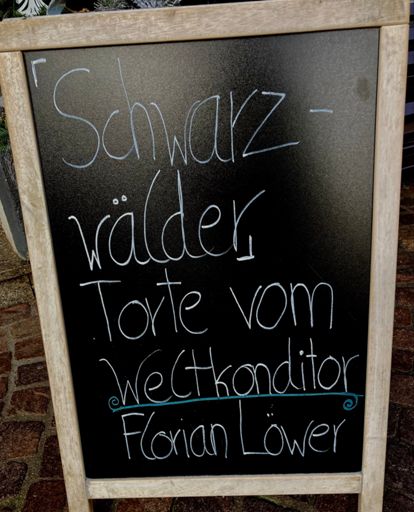 「Schwarz-
wälder」
Torte vom
Weltkonditor
Florian Löwer